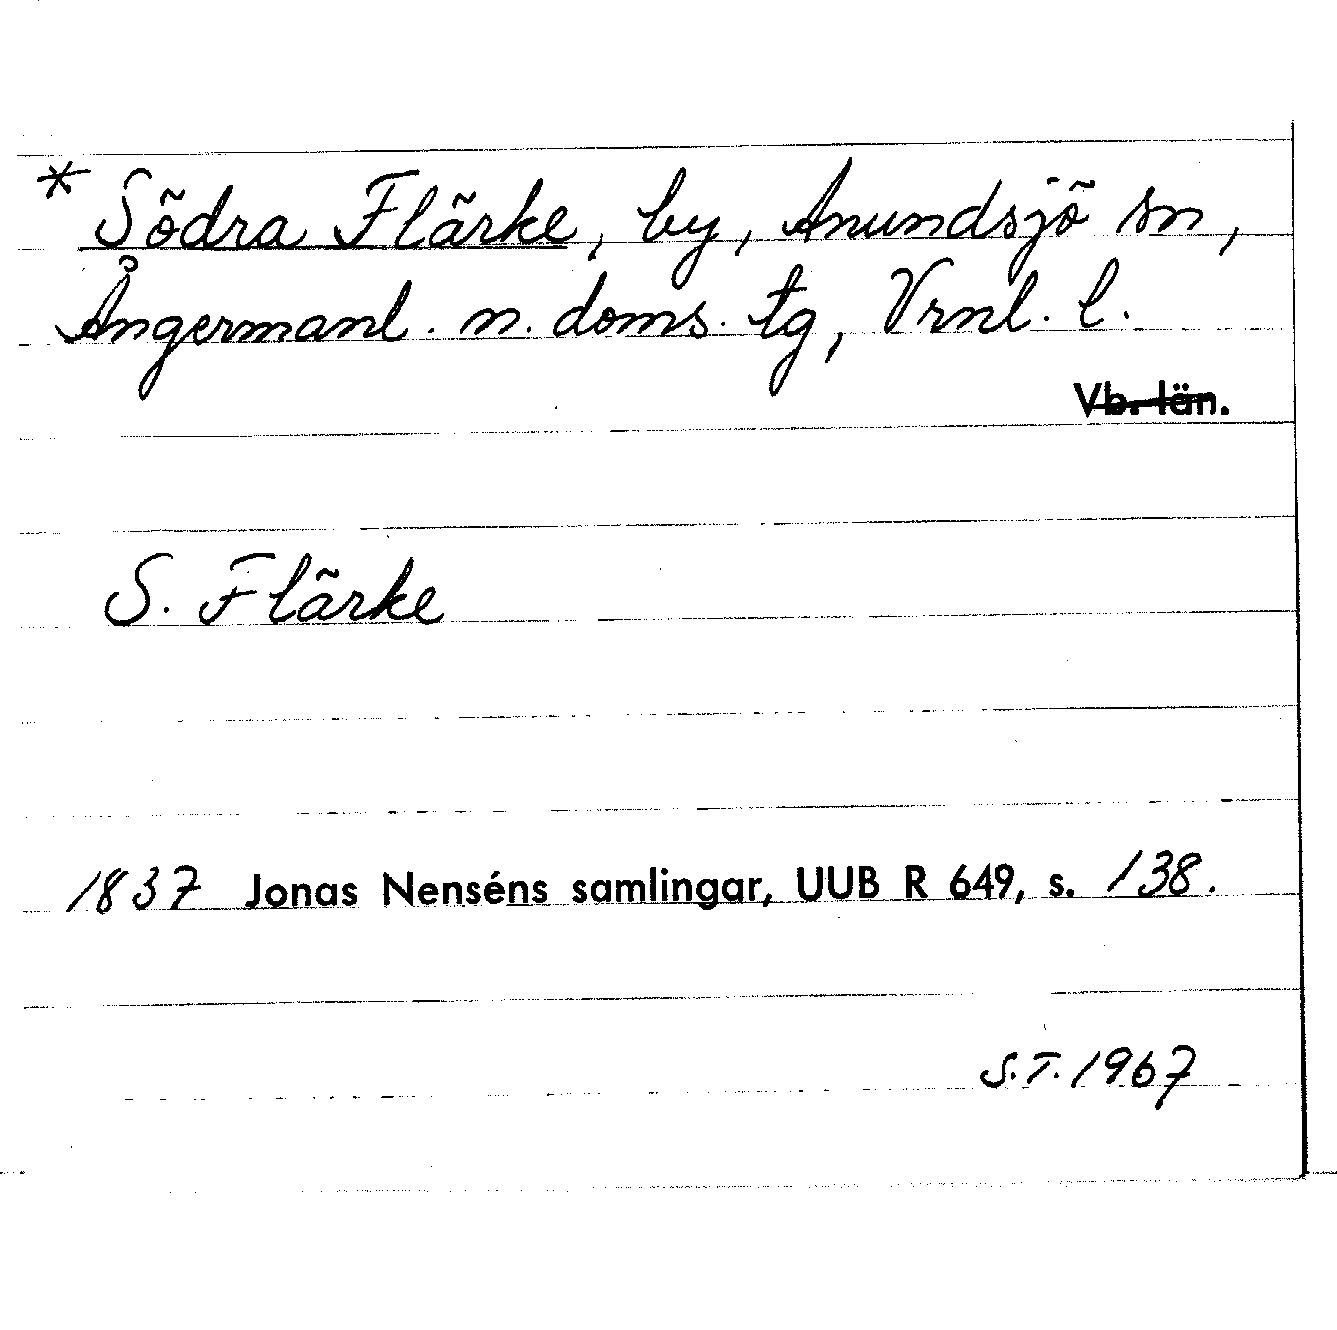 * Södra Flärke, by, Anundsjö sn,
Ångermanl. n. doms. tg, Vrnl. l.
Vb. län.
S. Flärke
1837 Jonas Nenséns samlingar, UUB R 649, s. 138.
S.T. 1967